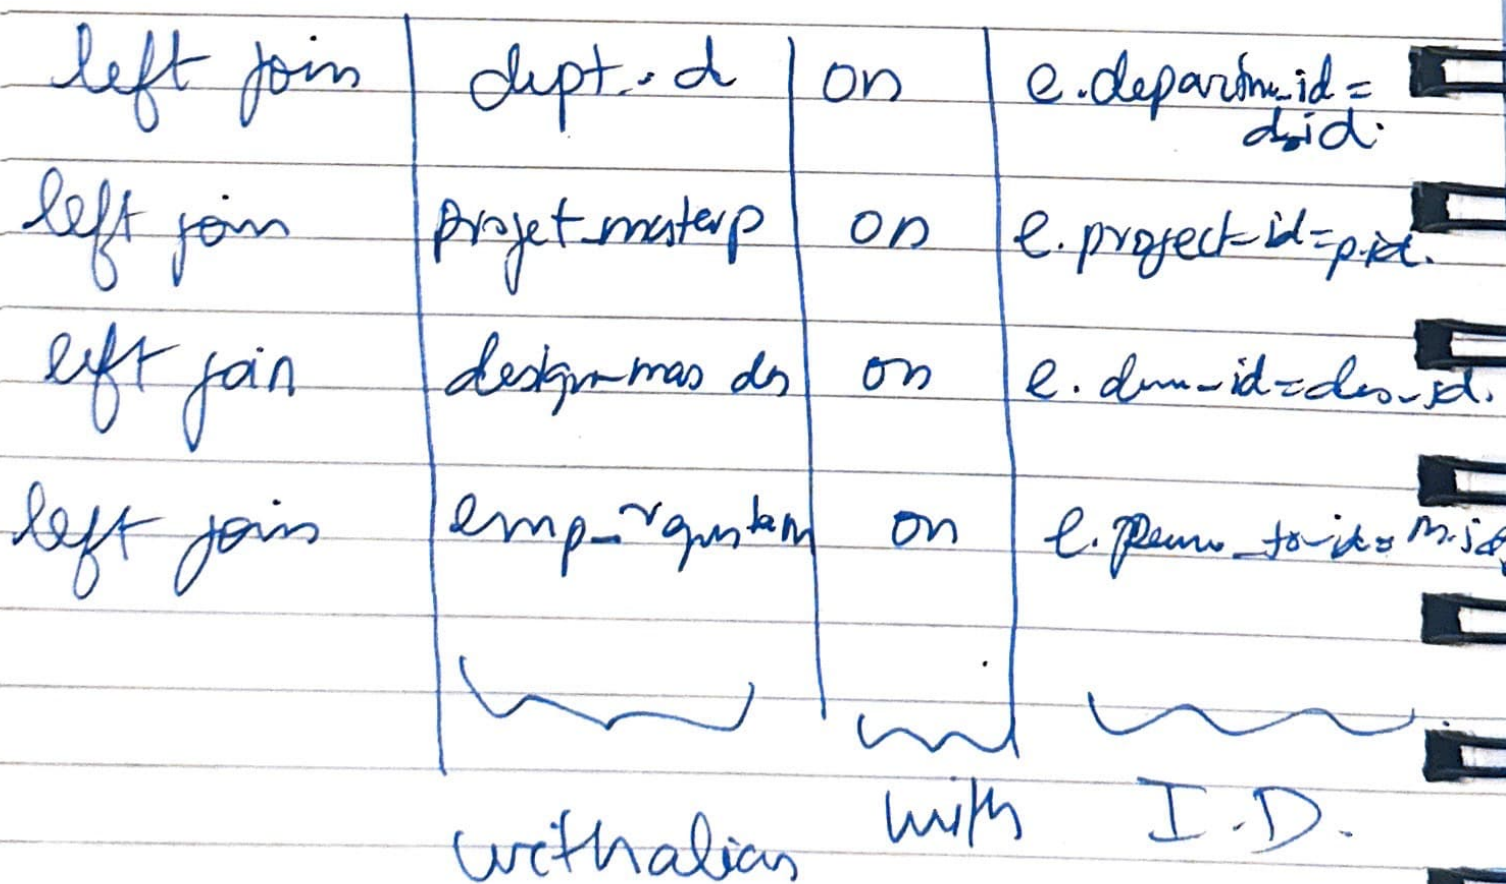 left join dept. d on e.departm_id =
d.id.
left join projet_master p on e.project_id = p.id.
left join design_mas ds on e. _id = des_id.
left join emp_ on e. _to_id = m.id
with alias with I.D.